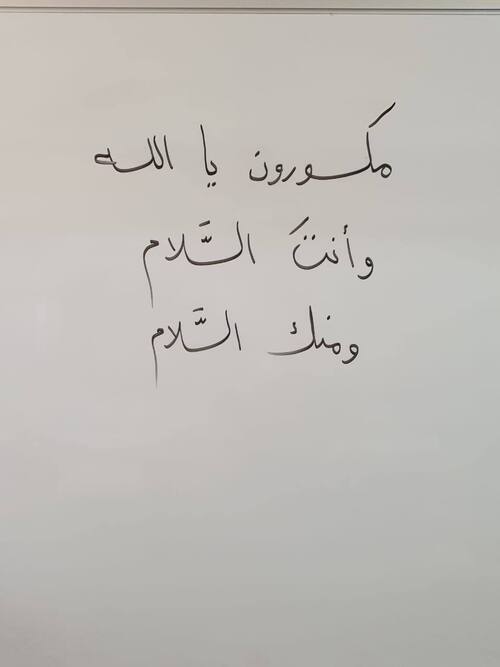 مكسورون يا الله
وأنتَ السَّلام
ومنك السَّلام